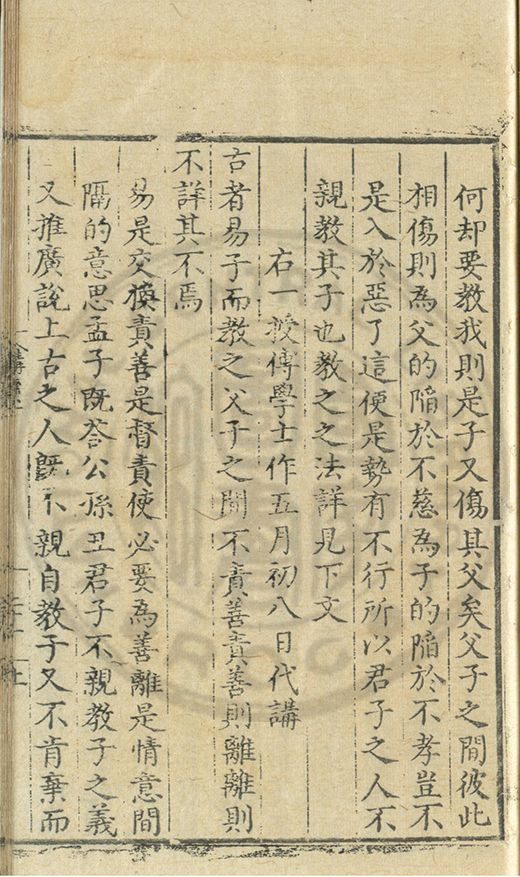 何却要教我則是子又傷其父矣父子之間彼此
相傷則為父的陷於不慈為子的陷於不孝豈不
是入於惡了這便是勢有不行所以君子之人不
親教其子也教之之法詳見下文
右一授傅學士作五月初八日代講
古者易子而教之父子之間不責善責善則離離則
不詳莫不焉
易是交換責善是督責使必要為善離是情意間
隔的意思孟子旣荅公孫丑君子不親教子之義
又推廣說上古之人旣不親自教子又不肯棄而